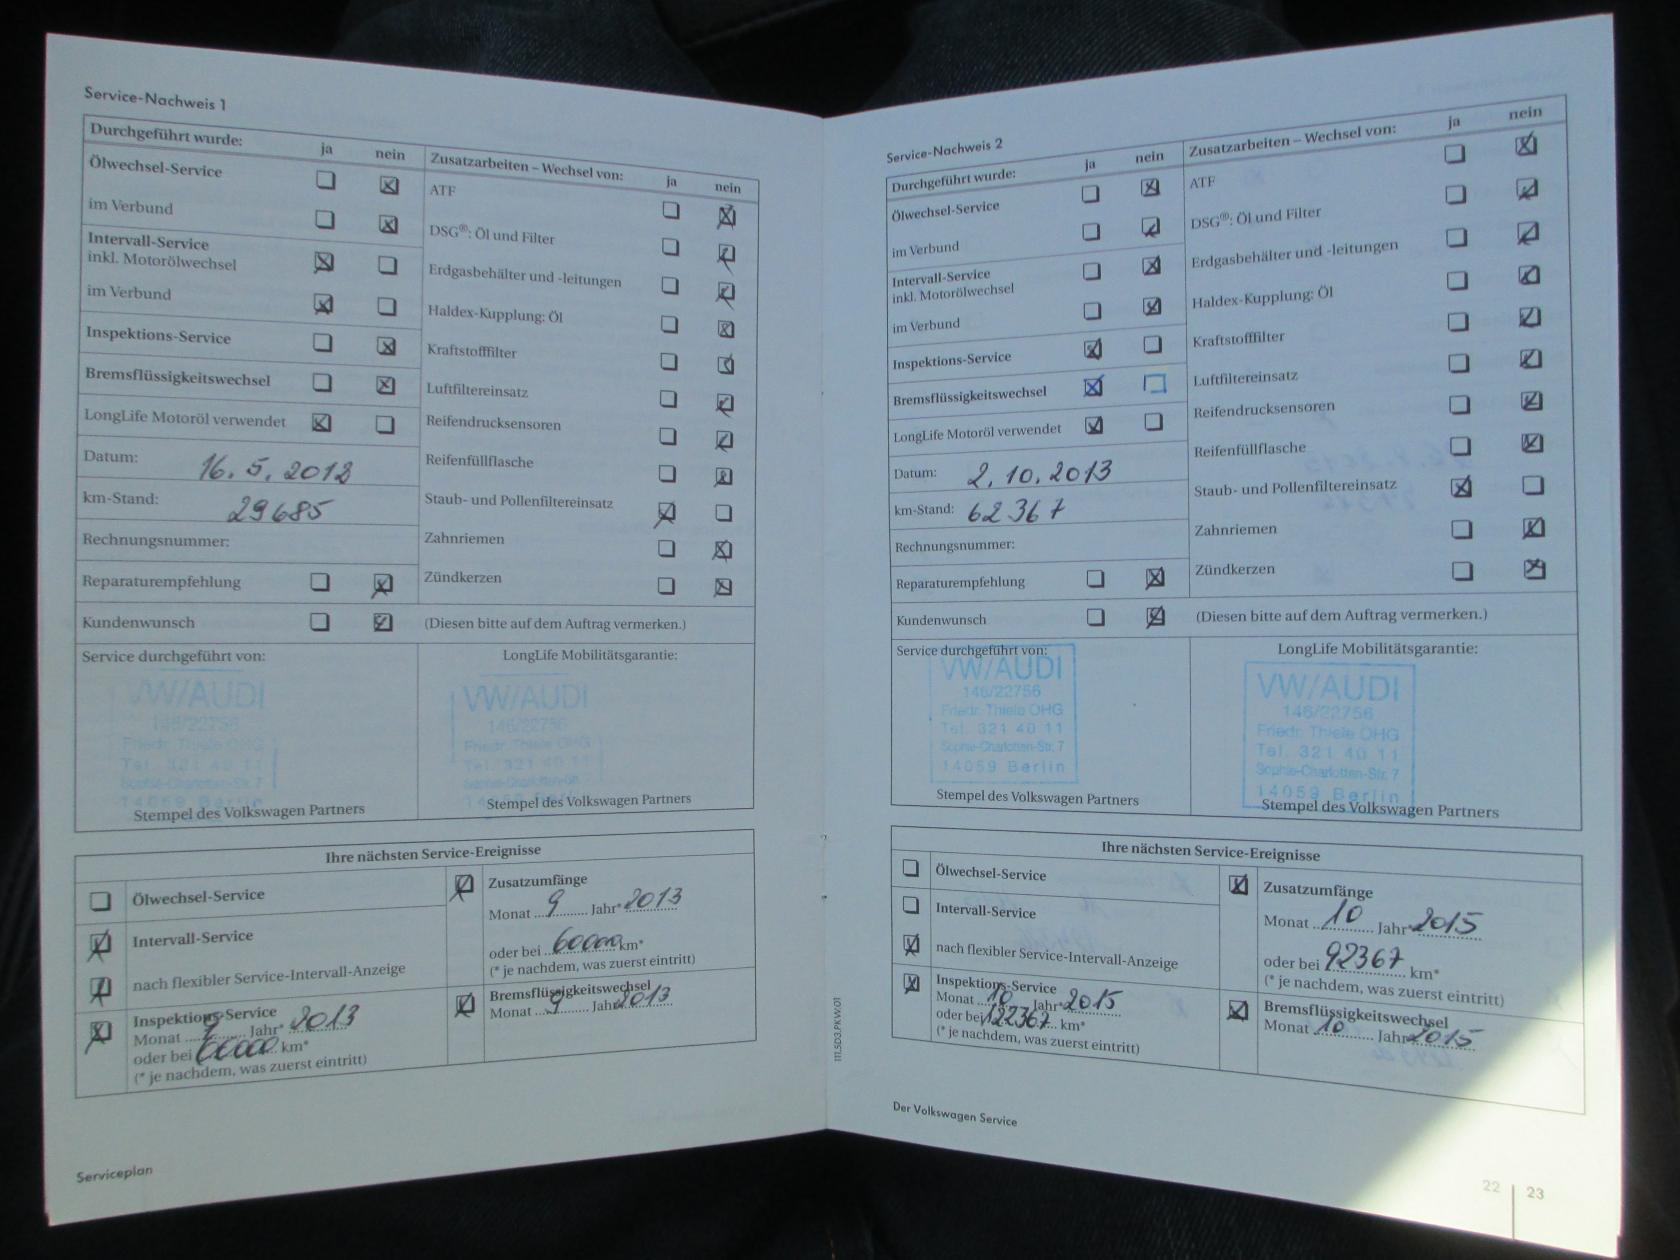 Service-Nachweis 1
Durchgeführt wurde: ja nein
Ölwechsel-Service ☐ ☒
im Verbund ☐ ☒
Intervall-Service
inkl. Motorölwechsel ☒ ☐
im Verbund ☒ ☐
Inspektions-Service ☐ ☒
Bremsflüssigkeitswechsel ☐ ☒
LongLife Motoröl verwendet ☒ ☐
Datum: 16. 5. 2012
km-Stand: 29685
Rechnungsnummer:
Reparaturempfehlung ☐ ☒
Kundenwunsch ☐ ☒ (Diesen bitte auf dem Auftrag vermerken.)
Zusatzarbeiten – Wechsel von: ja nein
ATF ☐ ☒
DSG®: Öl und Filter ☐ ☒
Erdgasbehälter und -leitungen ☐ ☒
Haldex-Kupplung: Öl ☐ ☒
Kraftstofffilter ☐ ☒
Luftfiltereinsatz ☐ ☒
Reifendrucksensoren ☐ ☒
Reifenfüllflasche ☐ ☒
Staub- und Pollenfiltereinsatz ☒ ☐
Zahnriemen ☐ ☒
Zündkerzen ☐ ☒
Service durchgeführt von:
VW/AUDI
146/22756
Friedr. Thiele OHG
Tel. 321 40 11
Sophie-Charlotten-Str. 7
14059 Berlin
Stempel des Volkswagen Partners
LongLife Mobilitätsgarantie:
VW/AUDI
146/22756
Friedr. Thiele OHG
Tel. 321 40 11
Stempel des Volkswagen Partners
Ihre nächsten Service-Ereignisse
☐ Ölwechsel-Service
☒ Intervall-Service
☒ nach flexibler Service-Intervall-Anzeige
☒ Inspektions-Service
Monat 9 Jahr* 2013
oder bei 60000 km*
(* je nachdem, was zuerst eintritt)
☒ Zusatzumfänge
Monat 9 Jahr* 2013
oder bei 60000 km*
(* je nachdem, was zuerst eintritt)
☒ Bremsflüssigkeitswechsel
Monat 9 Jahr 2013
Serviceplan
111.5D3.PKW.01
Service-Nachweis 2
Durchgeführt wurde: ja nein
Ölwechsel-Service ☐ ☒
im Verbund ☐ ☒
Intervall-Service
inkl. Motorölwechsel ☐ ☒
im Verbund ☐ ☒
Inspektions-Service ☒ ☐
Bremsflüssigkeitswechsel ☒ ☐
LongLife Motoröl verwendet ☒ ☐
Datum: 2. 10. 2013
km-Stand: 62367
Rechnungsnummer:
Reparaturempfehlung ☐ ☒
Kundenwunsch ☐ ☒ (Diesen bitte auf dem Auftrag vermerken.)
Zusatzarbeiten – Wechsel von: ja nein
ATF ☐ ☒
DSG®: Öl und Filter ☐ ☒
Erdgasbehälter und -leitungen ☐ ☒
Haldex-Kupplung: Öl ☐ ☒
Kraftstofffilter ☐ ☒
Luftfiltereinsatz ☐ ☒
Reifendrucksensoren ☐ ☒
Reifenfüllflasche ☐ ☒
Staub- und Pollenfiltereinsatz ☒ ☐
Zahnriemen ☐ ☒
Zündkerzen ☐ ☒
Service durchgeführt von:
VW/AUDI
146/22756
Friedr. Thiele OHG
Tel. 321 40 11
Sophie-Charlotten-Str. 7
14059 Berlin
Stempel des Volkswagen Partners
LongLife Mobilitätsgarantie:
VW/AUDI
146/22756
Friedr. Thiele OHG
Tel. 321 40 11
Sophie-Charlotten-Str. 7
14059 Berlin
Stempel des Volkswagen Partners
Ihre nächsten Service-Ereignisse
☐ Ölwechsel-Service
☐ Intervall-Service
☒ nach flexibler Service-Intervall-Anzeige
☒ Inspektions-Service
Monat 10 Jahr* 2015
oder bei 122367 km*
(* je nachdem, was zuerst eintritt)
☒ Zusatzumfänge
Monat 10 Jahr* 2015
oder bei 92367 km*
(* je nachdem, was zuerst eintritt)
☒ Bremsflüssigkeitswechsel
Monat 10 Jahr 2015
Der Volkswagen Service
22 | 23